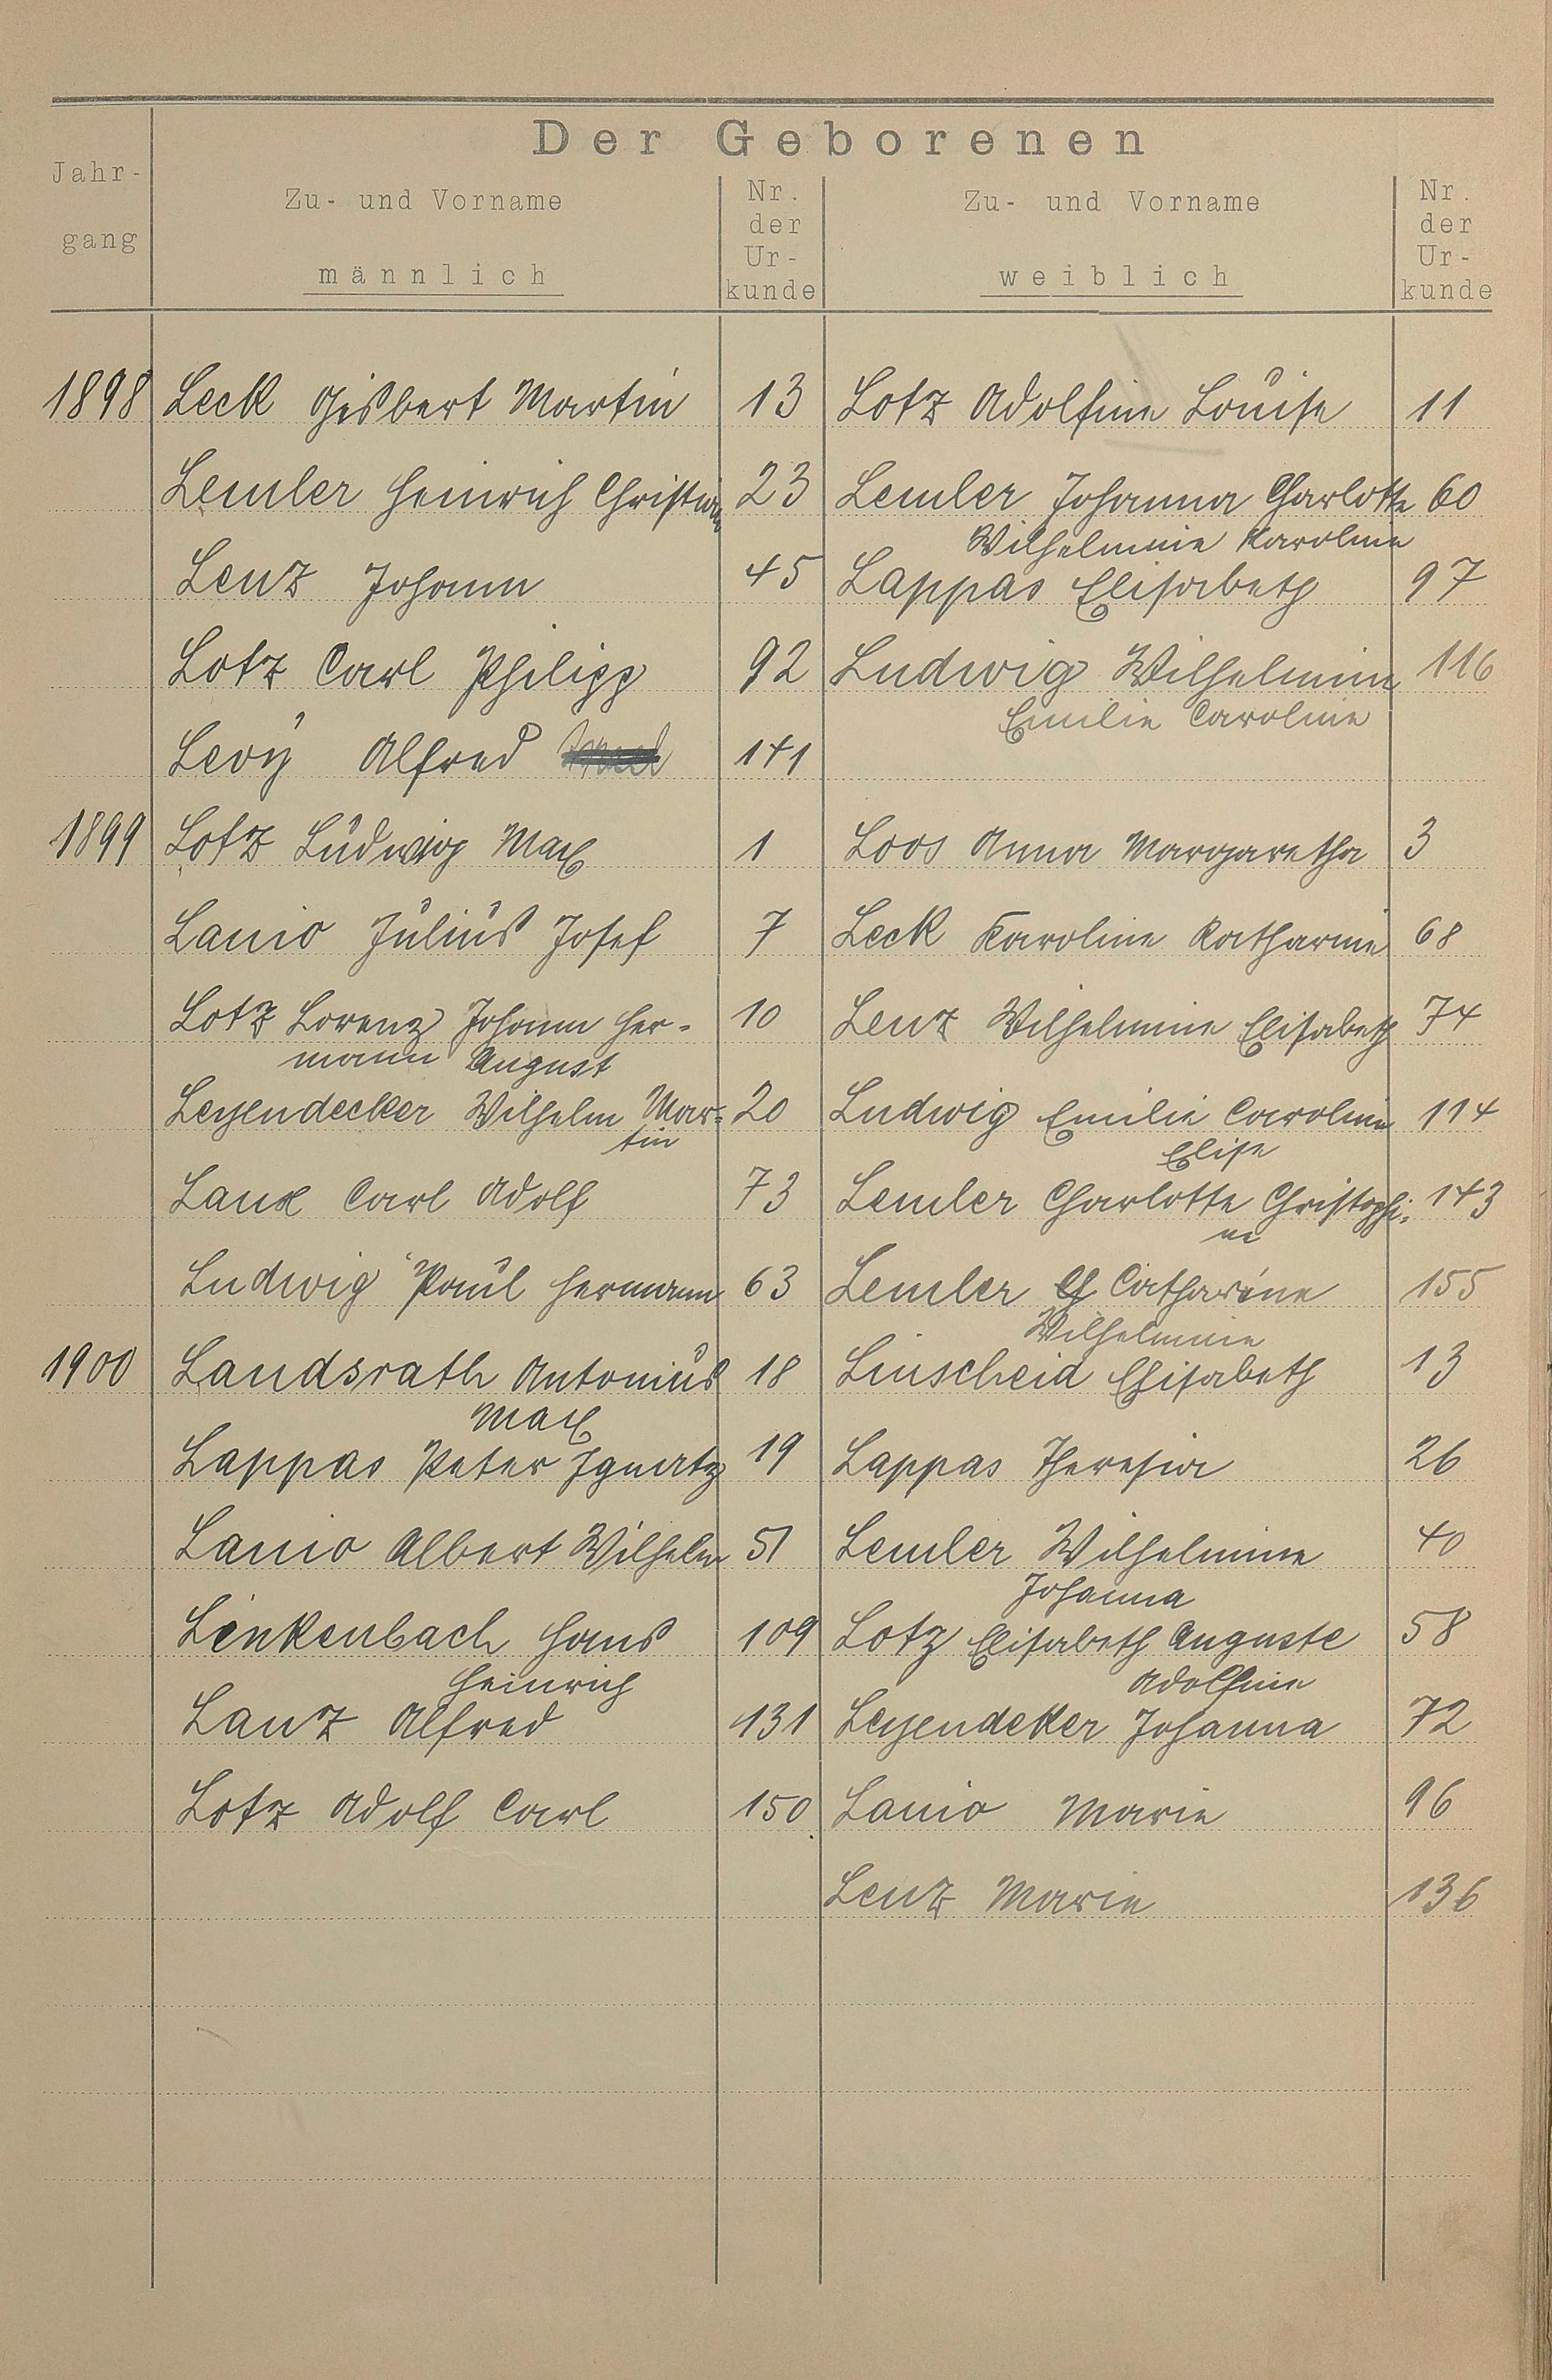 Der Geborenen
Jahrgang Zu- und Vorname männlich Nr. der Urkunde Zu- und Vorname weiblich Nr. der Urkunde
1898 Leck Gisbert Martin 13 Lotz Adolfine Louise 11
Lemler Heinrich Christian 23 Lemler Johanna Charlotte 60
Wilhelmine Karoline
Lenz Johann 45 Lappas Elisabeth 97
Lotz Carl Philipp 92 Ludwig Wilhelmine 116
Emilie Caroline
Levy Alfred 141
1899 Lotz Ludwig Max 1 Loos Anna Margaretha 3
Lanio Julius Josef 7 Leck Karoline Katharine 68
Lotz Lorenz Johann Her- 10 Lenz Wilhelmine Elisabeth 74
mann August
Leyendecker Wilhelm Mar- 20 Ludwig Emilie Caroline 114
tin Elise
Laux Carl Adolf 73 Lemler Charlotte Christophi- 143
ne
Ludwig Paul Hermann 63 Lemler Catharine 155
Wilhelmine
1900 Landsrath Antonius 18 Linscheid Elisabeth 13
Max
Lappas Peter Ignatz 19 Lappas Theresia 26
Lanio Albert Wilhelm 51 Lemler Wilhelmine 40
Johanna
Linkenbach Hans 109 Lotz Elisabeth Auguste 58
Heinrich Adolfine
Lanz Alfred 131 Leyendeker Johanna 72
Lotz Adolf Carl 150 Lanio Marie 96
Lenz Marie 136